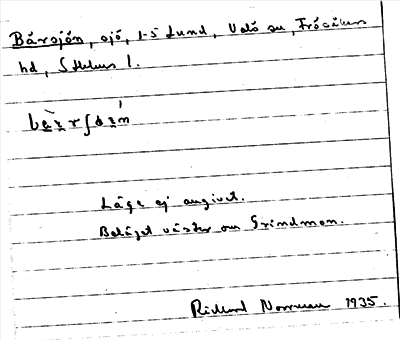 Bårsjön, sjö, 1-5 Lund, Valö sn, Frösåkers
hd, Sthlms l.
Läge ej angivet.
Beläget väster om Grindmon.
Richard Norrman 1935.